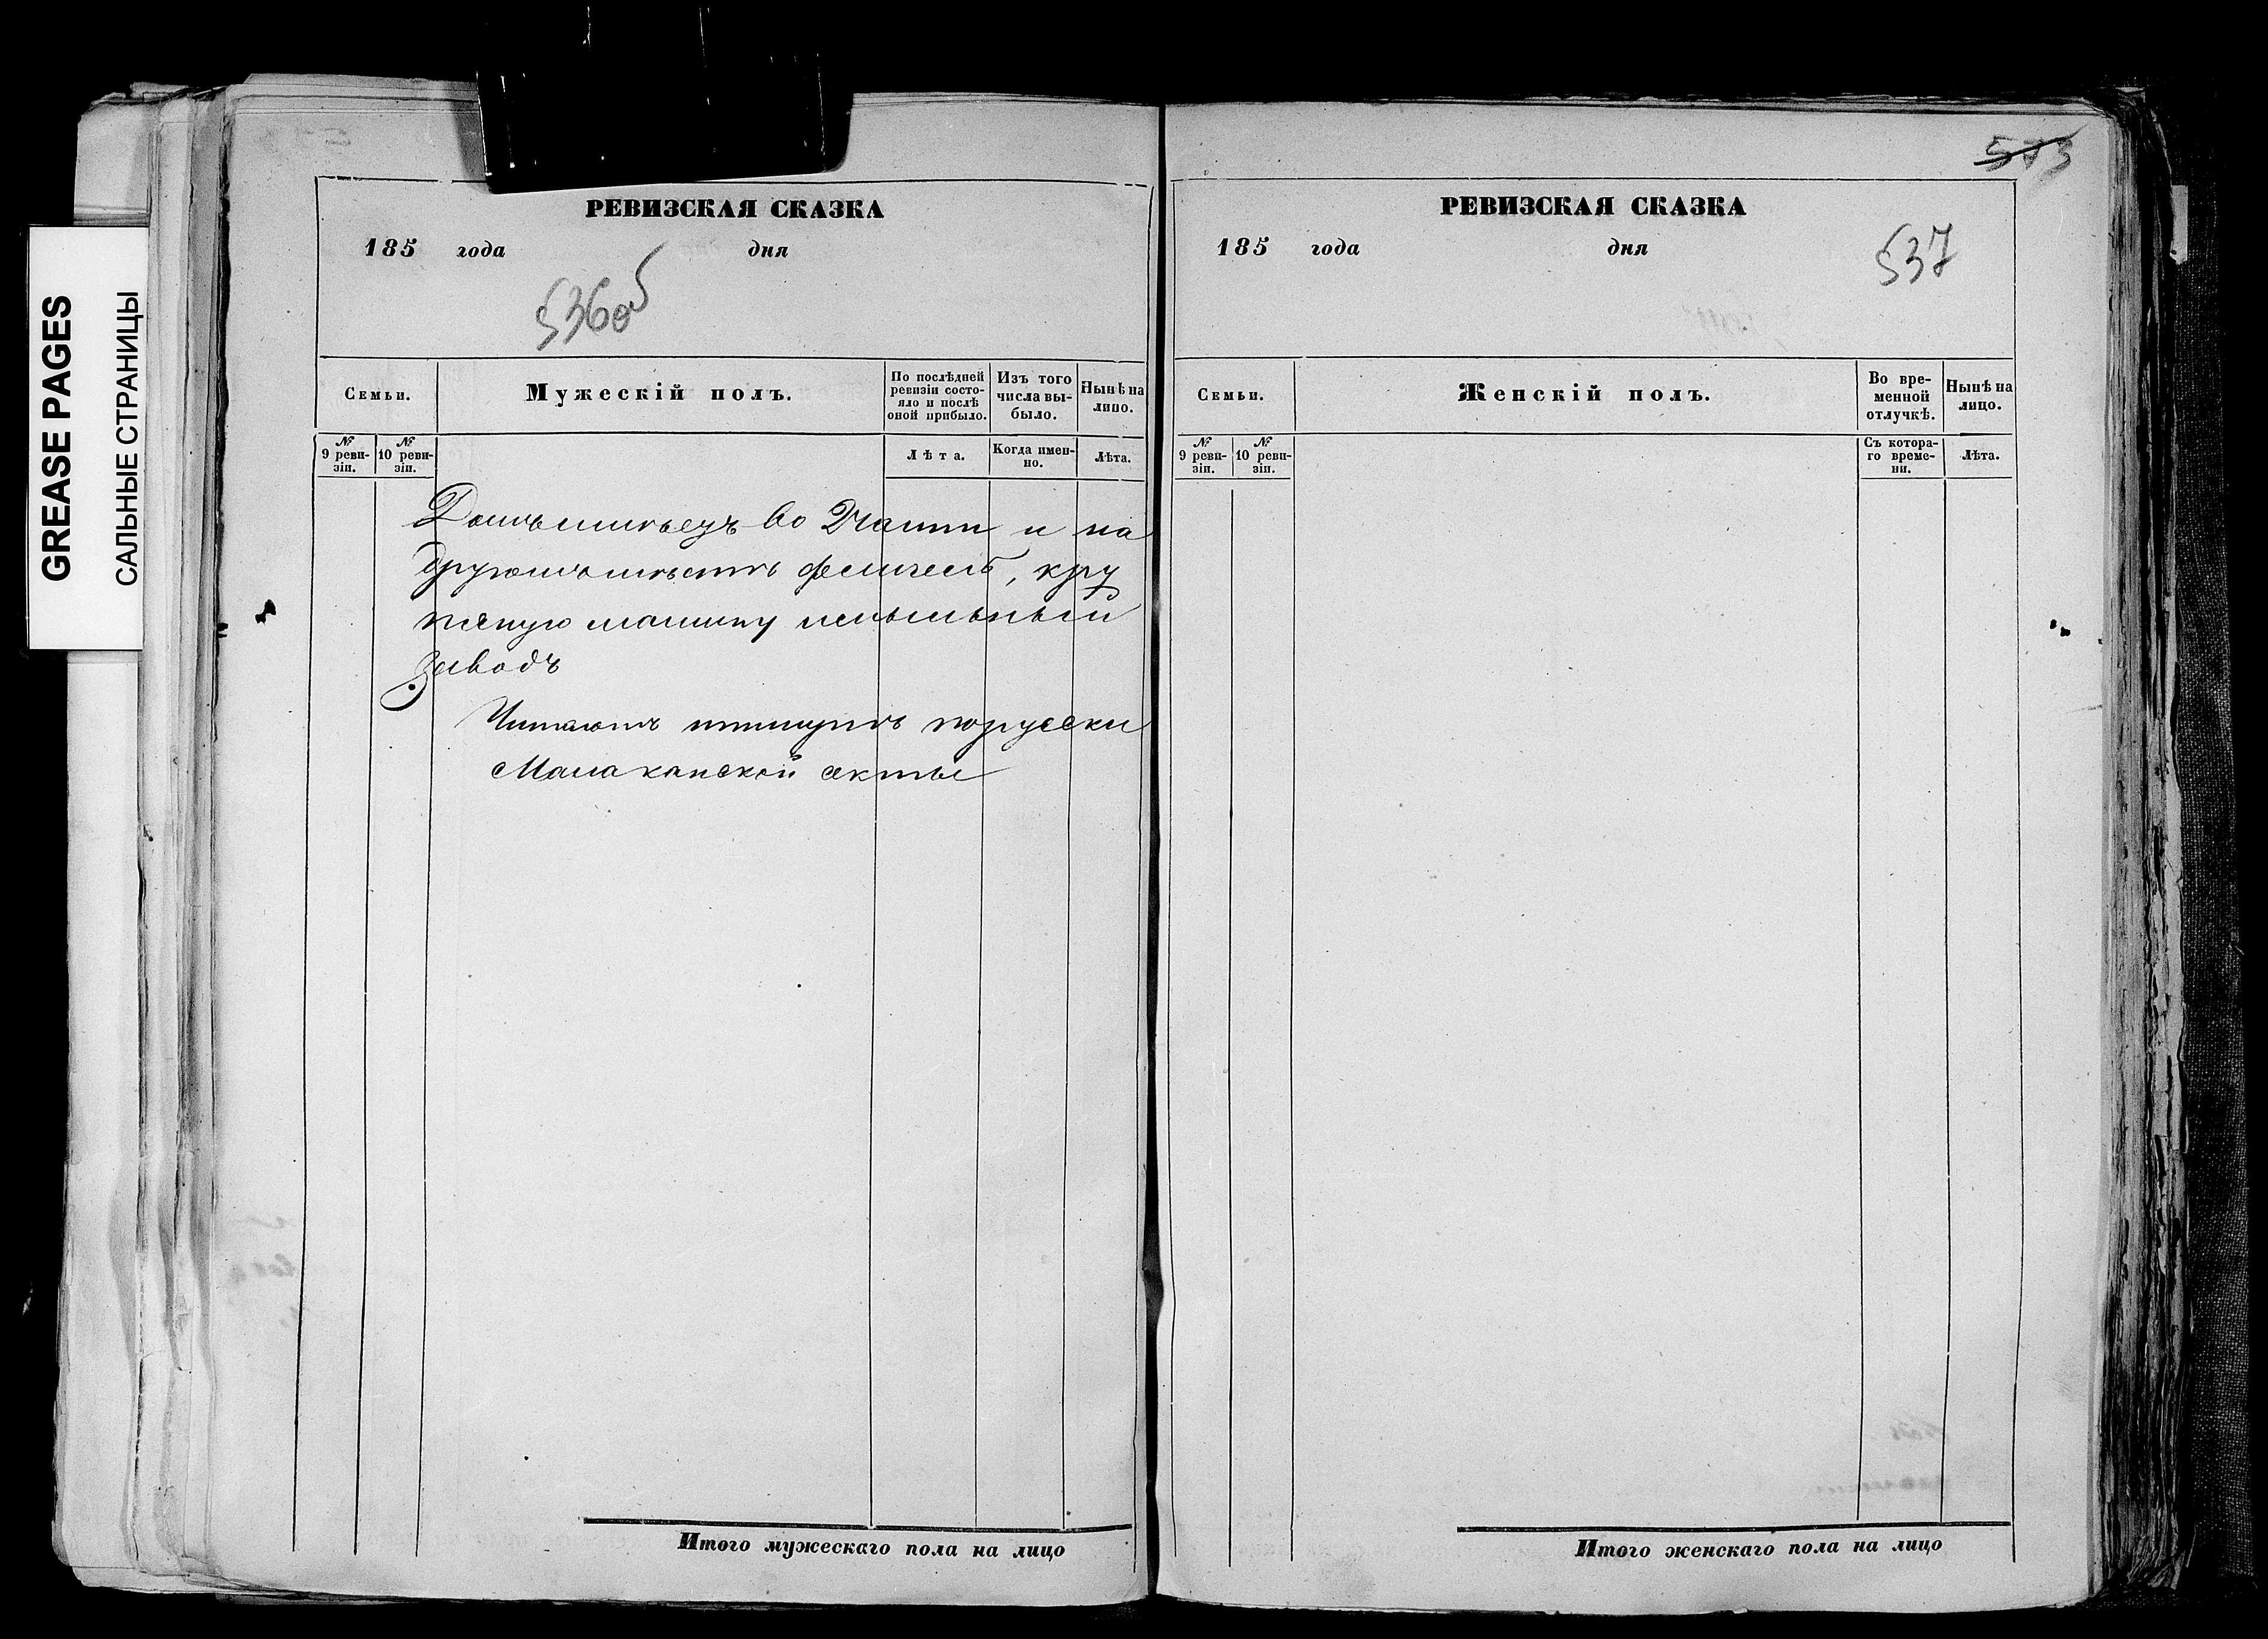 GREASE PAGES
САЛЬНЫЕ СТРАНИЦЫ
РЕВИЗСКАЯ СКАЗКА
185 года дня
536об
Семьи.
Мужескій полъ.
По послѣдней ревизіи состо-
яло и послѣ
оной прибыло.
Изъ того
числа вы-
было.
Нынѣ на
лицо.
№
9 реви-
зіи.
№
10 реви-
зіи.
Лѣта.
Когда имен-
но.
Лѣта.
и на
кру
машину
заводъ
Читаютъ порусски
Малаканской секты
Итого мужескаго пола на лицо
573
РЕВИЗСКАЯ СКАЗКА
185 года дня
537
Семьи.
Женскій полъ.
Во вре-
менной
отлучкѣ.
Нынѣ на
лицо.
№
9 реви-
зіи.
№
10 реви-
зіи.
Съ котора-
го време-
ни.
Лѣта.
Итого женскаго пола на лицо